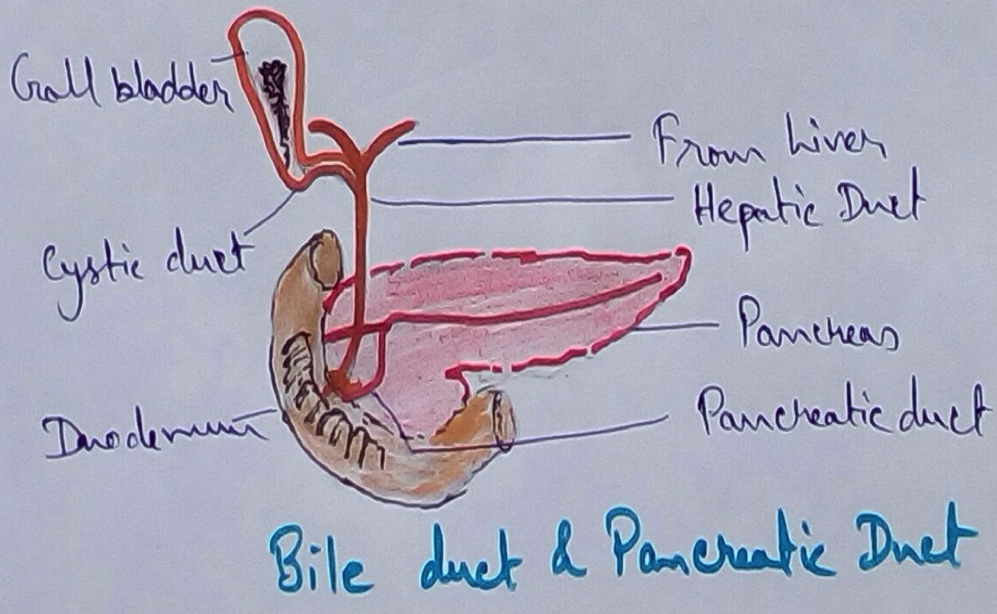 Gall bladder
From Liver
Hepatic Duct
Cystic duct
Pancreas
Pancreatic duct
Duodenum
Bile duct & Pancreatic Duct